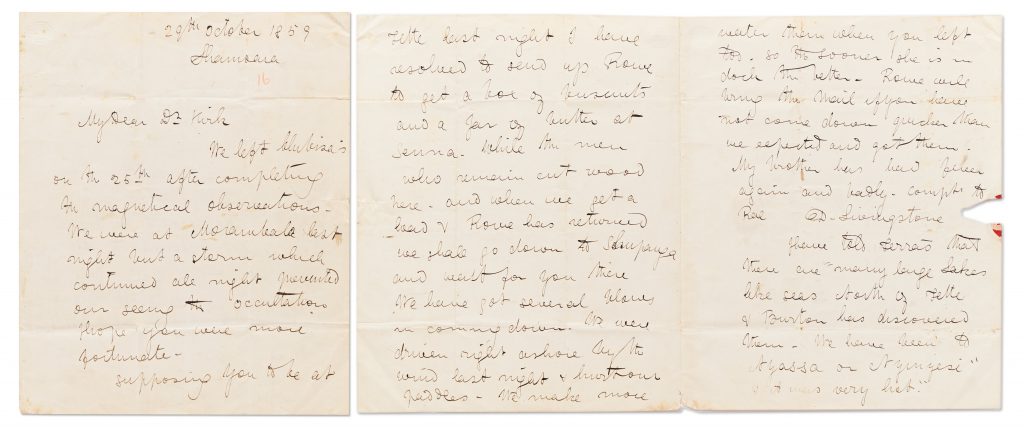 29th October 1859
Shamoara
16
My Dear Dr Kirk
We left Chibisa's
on th 25th after completing
the magnetical observations -
We were at Morambala last
night but a storm which
continued all night prevented
our seeing the occultation
I hope you were more
fortunate -
supposing you to be at
Tette last night I have
resolved to send up Rowe
to get a box of biscuits
and a jar of butter at
Senna. While the men
who remain cut wood
here - and when we get a
load & Rowe has returned
we shall go down to Shupanga
and wait for you there
We have got several blows
in coming down. We were
driven right ashore by th
wind last night & hurt our
paddles - We make more
water then when you left
too. so the sooner she is in
dock the better - Rowe will
bring the Mail if you have
not come down quicker than
we expected and got them.
My brother has had fever
again and badly - compts to
Rae D. Livingstone
I have told Ferrao that
there are "many large Lakes
like seas North of Tette
& Burton has discovered
them - We have been to
Nyassa or Nyinyesi"
it was very hot."